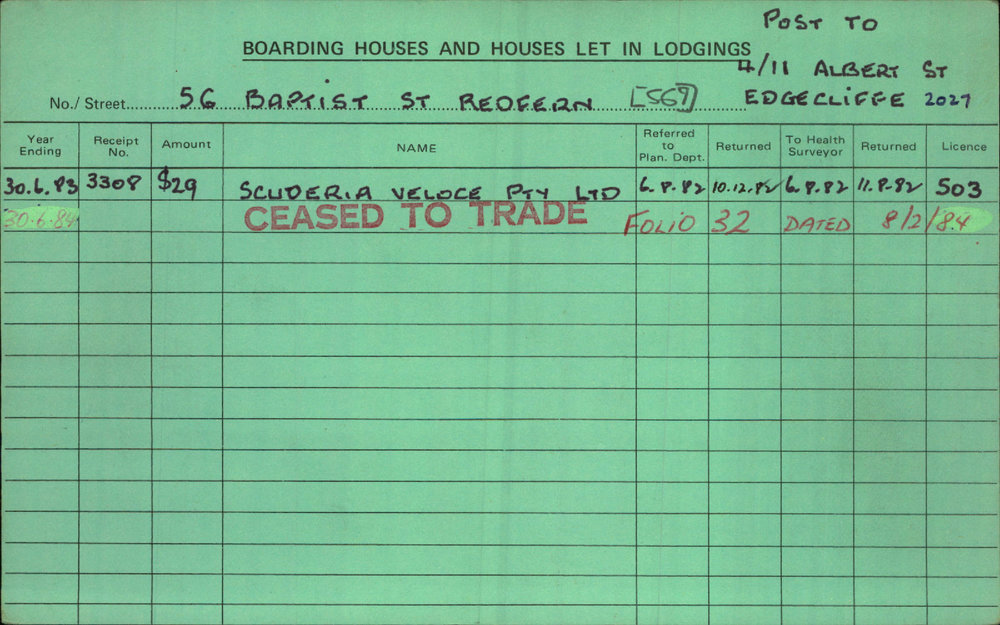 POST TO
BOARDING HOUSES AND HOUSES LET IN LODGINGS
4/11 ALBERT ST
No./ Street 56 BAPTIST ST REDFERN [569] EDGECLIFFE 2027
Year Ending Receipt No. Amount NAME Referred to Plan. Dept. Returned To Health Surveyor Returned Licence
30.6.83 3308 $29 SCUDERIA VELOCE PTY LTD 6.8.82 10.12.82 6.8.82 11.8.82 503
30.6.84 CEASED TO TRADE FOLIO 32 DATED 8/2/84